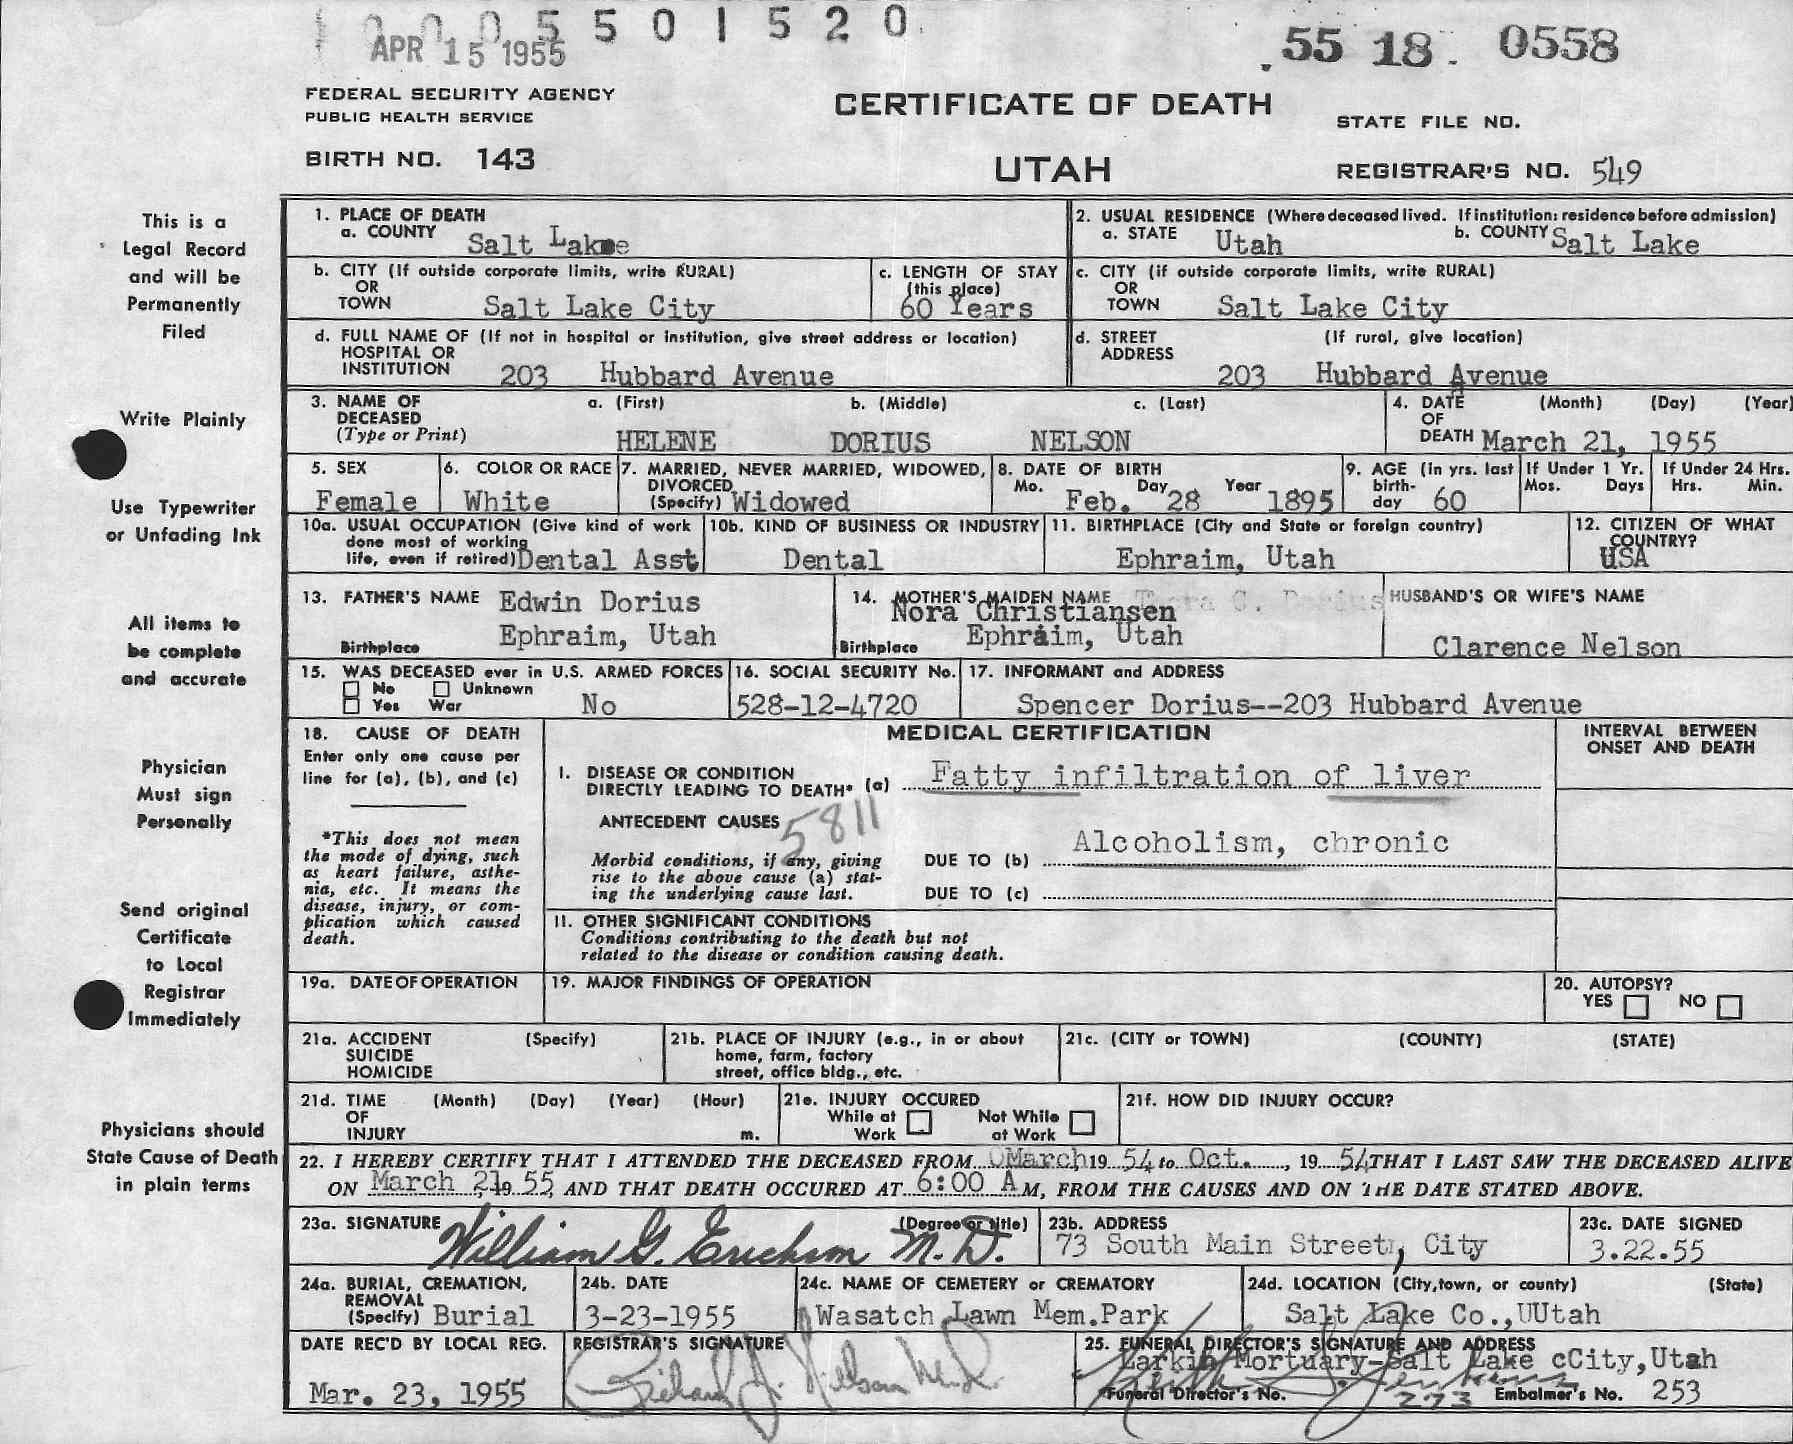 1000 5501520
APR 15 1955
55 18 0558
FEDERAL SECURITY AGENCY
PUBLIC HEALTH SERVICE
CERTIFICATE OF DEATH
STATE FILE NO.
BIRTH NO. 143
UTAH
REGISTRAR'S NO. 549
This is a
Legal Record
and will be
Permanently
Filed
Write Plainly
Use Typewriter
or Unfading Ink
All items to
be complete
and accurate
Physician
Must sign
Personally
Send original
Certificate
to Local
Registrar
Immediately
Physicians should
State Cause of Death
in plain terms
1. PLACE OF DEATH
a. COUNTY Salt Lake
2. USUAL RESIDENCE (Where deceased lived. If institution: residence before admission)
a. STATE Utah b. COUNTY Salt Lake
b. CITY (If outside corporate limits, write RURAL)
OR
TOWN Salt Lake City
c. LENGTH OF STAY
(this place)
60 Years
c. CITY (if outside corporate limits, write RURAL)
OR
TOWN Salt Lake City
d. FULL NAME OF (If not in hospital or institution, give street address or location)
HOSPITAL OR
INSTITUTION 203 Hubbard Avenue
d. STREET (If rural, give location)
ADDRESS
203 Hubbard Avenue
3. NAME OF a. (First) b. (Middle) c. (Last)
DECEASED
(Type or Print) HELENE DORIUS NELSON
4. DATE (Month) (Day) (Year)
OF
DEATH March 21, 1955
5. SEX
Female
6. COLOR OR RACE
White
7. MARRIED, NEVER MARRIED, WIDOWED,
DIVORCED
(Specify) Widowed
8. DATE OF BIRTH
Mo. Day Year
Feb. 28 1895
9. AGE (In yrs. last
birth-
day 60
If Under 1 Yr.
Mos. Days
If Under 24 Hrs.
Hrs. Min.
10a. USUAL OCCUPATION (Give kind of work
done most of working
life, even if retired) Dental Asst
10b. KIND OF BUSINESS OR INDUSTRY
Dental
11. BIRTHPLACE (City and State or foreign country)
Ephraim, Utah
12. CITIZEN OF WHAT
COUNTRY?
USA
13. FATHER'S NAME Edwin Dorius
Birthplace Ephraim, Utah
14. MOTHER'S MAIDEN NAME
Nora Christiansen
Birthplace Ephraim, Utah
HUSBAND'S OR WIFE'S NAME
Clarence Nelson
15. WAS DECEASED ever in U.S. ARMED FORCES
No Unknown
Yes War No
16. SOCIAL SECURITY No.
528-12-4720
17. INFORMANT and ADDRESS
Spencer Dorius--203 Hubbard Avenue
18. CAUSE OF DEATH
Enter only one cause per
line for (a), (b), and (c)
*This does not mean
the mode of dying, such
as heart failure, asthe-
nia, etc. It means the
disease, injury, or com-
plication which caused
death.
MEDICAL CERTIFICATION
INTERVAL BETWEEN
ONSET AND DEATH
I. DISEASE OR CONDITION
DIRECTLY LEADING TO DEATH* (a) Fatty infiltration of liver
ANTECEDENT CAUSES
5811
Morbid conditions, if any, giving
rise to the above cause (a) stat-
ing the underlying cause last.
DUE TO (b) Alcoholism, chronic
DUE TO (c)
II. OTHER SIGNIFICANT CONDITIONS
Conditions contributing to the death but not
related to the disease or condition causing death.
19a. DATE OF OPERATION
19. MAJOR FINDINGS OF OPERATION
20. AUTOPSY?
YES NO
21a. ACCIDENT (Specify)
SUICIDE
HOMICIDE
21b. PLACE OF INJURY (e.g., in or about
home, farm, factory
street, office bldg., etc.
21c. (CITY or TOWN) (COUNTY) (STATE)
21d. TIME (Month) (Day) (Year) (Hour)
OF
INJURY m.
21e. INJURY OCCURED
While at Work Not While at Work
21f. HOW DID INJURY OCCUR?
22. I HEREBY CERTIFY THAT I ATTENDED THE DECEASED FROM March 19 54 to Oct. , 19 54 THAT I LAST SAW THE DECEASED ALIVE
ON March 21, 19 55, AND THAT DEATH OCCURED AT 6:00 A M, FROM THE CAUSES AND ON THE DATE STATED ABOVE.
23a. SIGNATURE (Degree or title)
William G. Erickson M.D.
23b. ADDRESS
73 South Main Street, City
23c. DATE SIGNED
3.22.55
24a. BURIAL, CREMATION,
REMOVAL
(Specify) Burial
24b. DATE
3-23-1955
24c. NAME OF CEMETERY or CREMATORY
Wasatch Lawn Mem.Park
24d. LOCATION (City,town, or county) (State)
Salt Lake Co.,UUtah
DATE REC'D BY LOCAL REG.
Mar. 23, 1955
REGISTRAR'S SIGNATURE
Richard J. Nelson
25. FUNERAL DIRECTOR'S SIGNATURE AND ADDRESS
Larkin Mortuary-Salt Lake cCity,Utah
Funeral Director's No. 273 Embalmer's No. 253